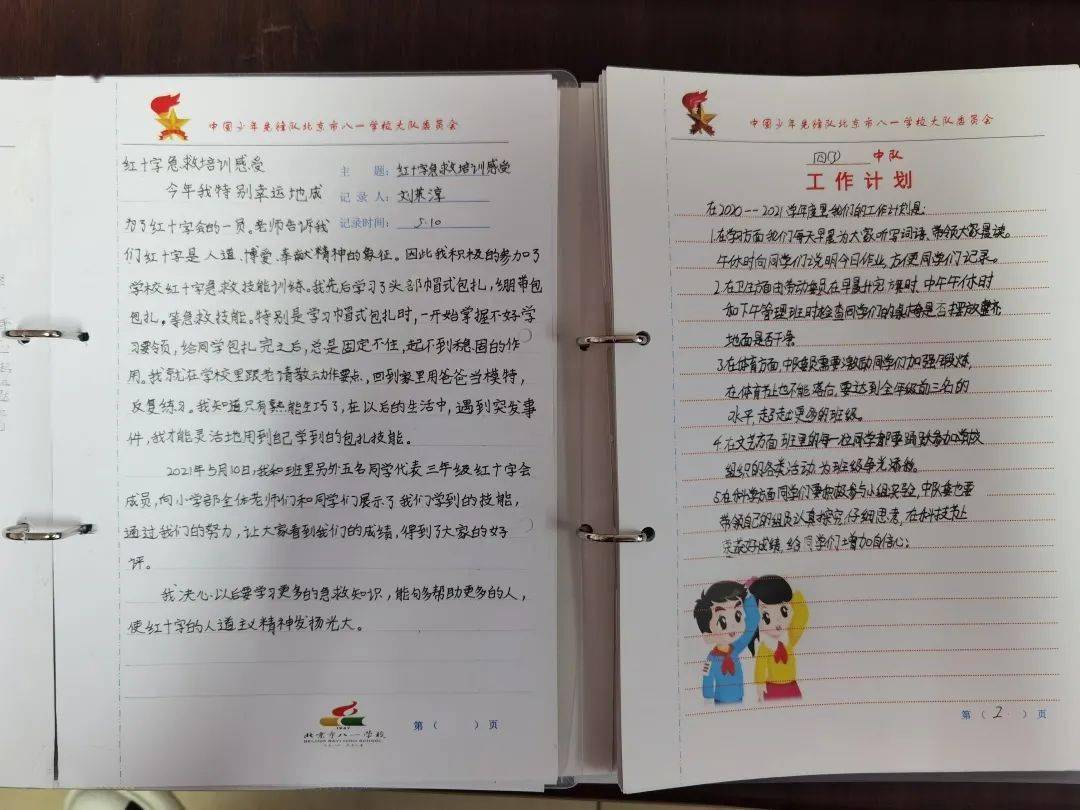 中国少年先锋队北京市八一学校大队委员会
红十字急救培训感受
主 题: 红十字急救培训感受
今年我特别幸运地成
记录人: 刘
为了红十字会的一员。老师告诉我
记录时间: 5.10
们红十字是人道、博爱、奉献精神的象征。因此我积极的参加了
学校红十字急救技能训练。我先后学习了头部帽式包扎,绷带包
包扎。等急救技能。特别是学习帽式包扎时,一开始掌握不好学
习要领,给同学包扎完之后,总是固定不住,起不到稳固的作
用。我就在学校里跟老请教动作要点,回到家里用爸爸当模特,
反复练习。我知道只有熟能生巧了,在以后的生活中,遇到突发事
件,我才能灵活地用到自己学到的包扎技能。
2021年5月10日,我和班里另外五名同学代表三年级红十字会
成员,向小学部全体老师们和同学们展示了我们学到的技能,
通过我们的努力,让大家看到我们的成绩,得到了大家的好
评。
我决心以后要学习更多的急救知识,能够多帮助更多的人,
使红十字的人道主义精神发扬光大。
1947
北京市八一学校
BEIJING BAYI SCHOOL
第( )页
中国少年先锋队北京市八一学校大队委员会
中队
工作计划
在2020--2021学年度里我们的工作计划是:
1.在学习方面我们每天早晨为大家听写词语、带领大家晨读。
午休时向同学们说明今日作业,方便同学们记录。
2.在卫生方面由劳动委员在早晨 课时,中午午休时
和下午管理班时检查同学们的桌椅是否摆放整齐
地面是否干净
3.在体育方面,中队委员需要激励同学们加强锻炼,
在体育上也不能落后,要达到全年级前三名的
水平,超更多的班级。
4.在文艺方面班里的每一位同学都要踊跃参加学校
组织的各类活动,为班级争光添彩。
5.在科学方面同学们要积极参与小组实验,中队委也要
带领自己的组员认真探究仔细思考,在科技上
荣获好成绩,给同学们增加自信心;
第( 2 )页